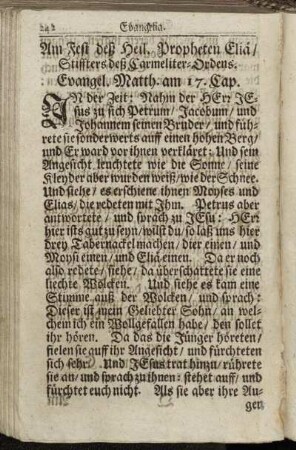 242 Evangelia.
Am Fest deß Heil. Propheten Eliä/
Stiffters deß Carmeliter-Ordens.
Evangel. Matth. am 17. Cap.
IN der Zeit: Nahm der HErr JE-
sus zu sich Petrum/ Jacobum/ und
Johannem seinen Bruder/ und füh-
rete sie sonderwerts auff einen hohen Berg/
und Er ward vor ihnen verkläret: Und sein
Angesicht leuchtete wie die Sonne/ seine
Kleyder aber wurden weiß/ wie der Schnee.
Und siehe/ es erschiene ihnen Moyses und
Elias/ die redeten mit Ihm. Petrus aber
antwortete/ und sprach zu JEsu: HErr
hier ists gut zu seyn/ wilst du/ so laß uns hier
drey Tabernackel machen/ dier einen/ und
Moysi einen/ und Eliä einen. Da er noch
also redete/ siehe/ da überschattete sie eine
liechte Wolcken. Und siehe es kam eine
Stimme auß der Wolcken/ und sprach:
Dieser ist mein Geliebter Sohn/ an wel-
chem ich ein Wollgefallen habe/ den sollet
ihr hören. Da das die Jünger höreten/
fielen sie auff ihr Angesicht/ und fürchteten
sich sehr. Und JEsus trat hinzu/ rührete
sie an/ und sprach zu ihnen: stehet auff/ und
fürchtet euch nicht. Als sie aber ihre Au-
gen